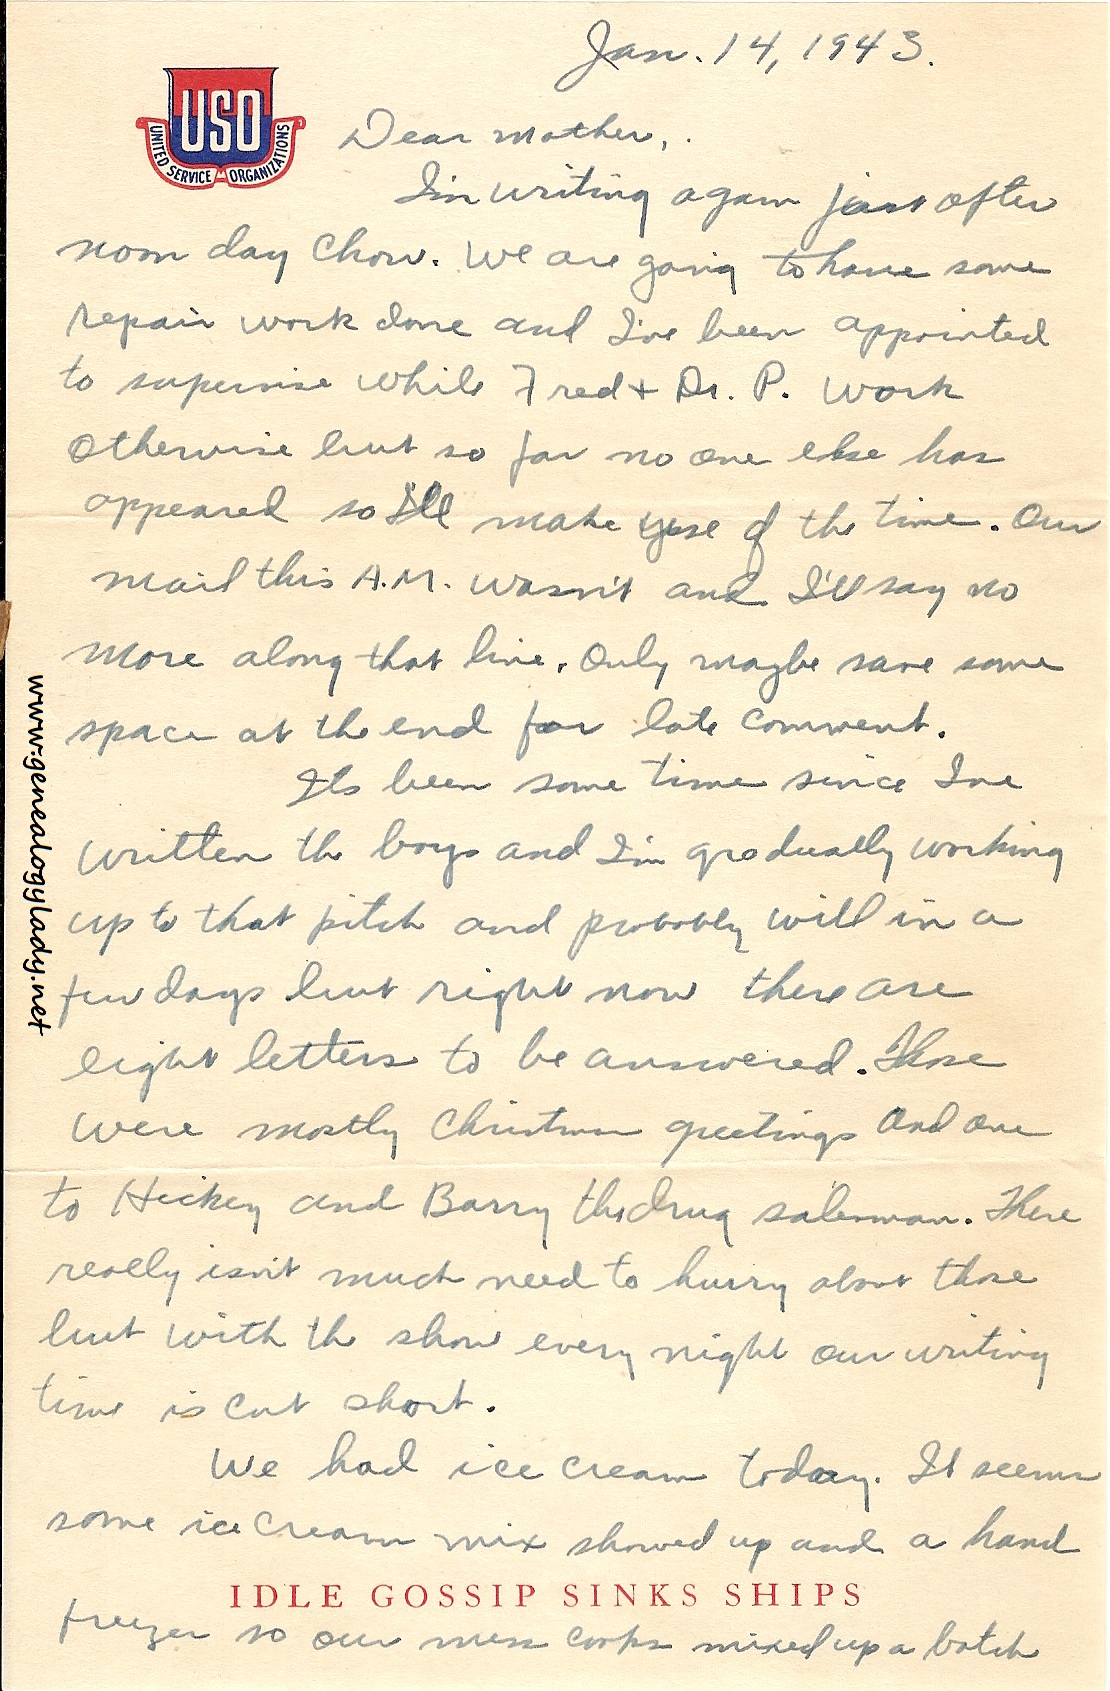 Jan. 14, 1943.
USO
UNITED SERVICE ORGANIZATIONS
Dear Mother,
I'm writing again just after
noon day chow. We are going to have some
repair work done and I've been appointed
to supervise while Fred + Dr. P. work
otherwise but so far no one else has
appeared so I'll make use of the time. Our
mail this A.M. wasn't and I'll say no
more along that line. Only maybe save some
space at the end for late comment.
Its been some time since I've
written the boys and I'm gradually working
up to that pitch and probably will in a
few days but right now there are
eight letters to be answered. Those
were mostly Christmas greetings and one
to Hickey and Barry the drug salesman. There
really isn't much need to hurry about those
but with the show every night our writing
time is cut short.
We had ice cream today. It seems
some ice cream mix showed up and a hand
IDLE GOSSIP SINKS SHIPS
freezer so our mess cooks mixed up a batch
www.genealogylady.net